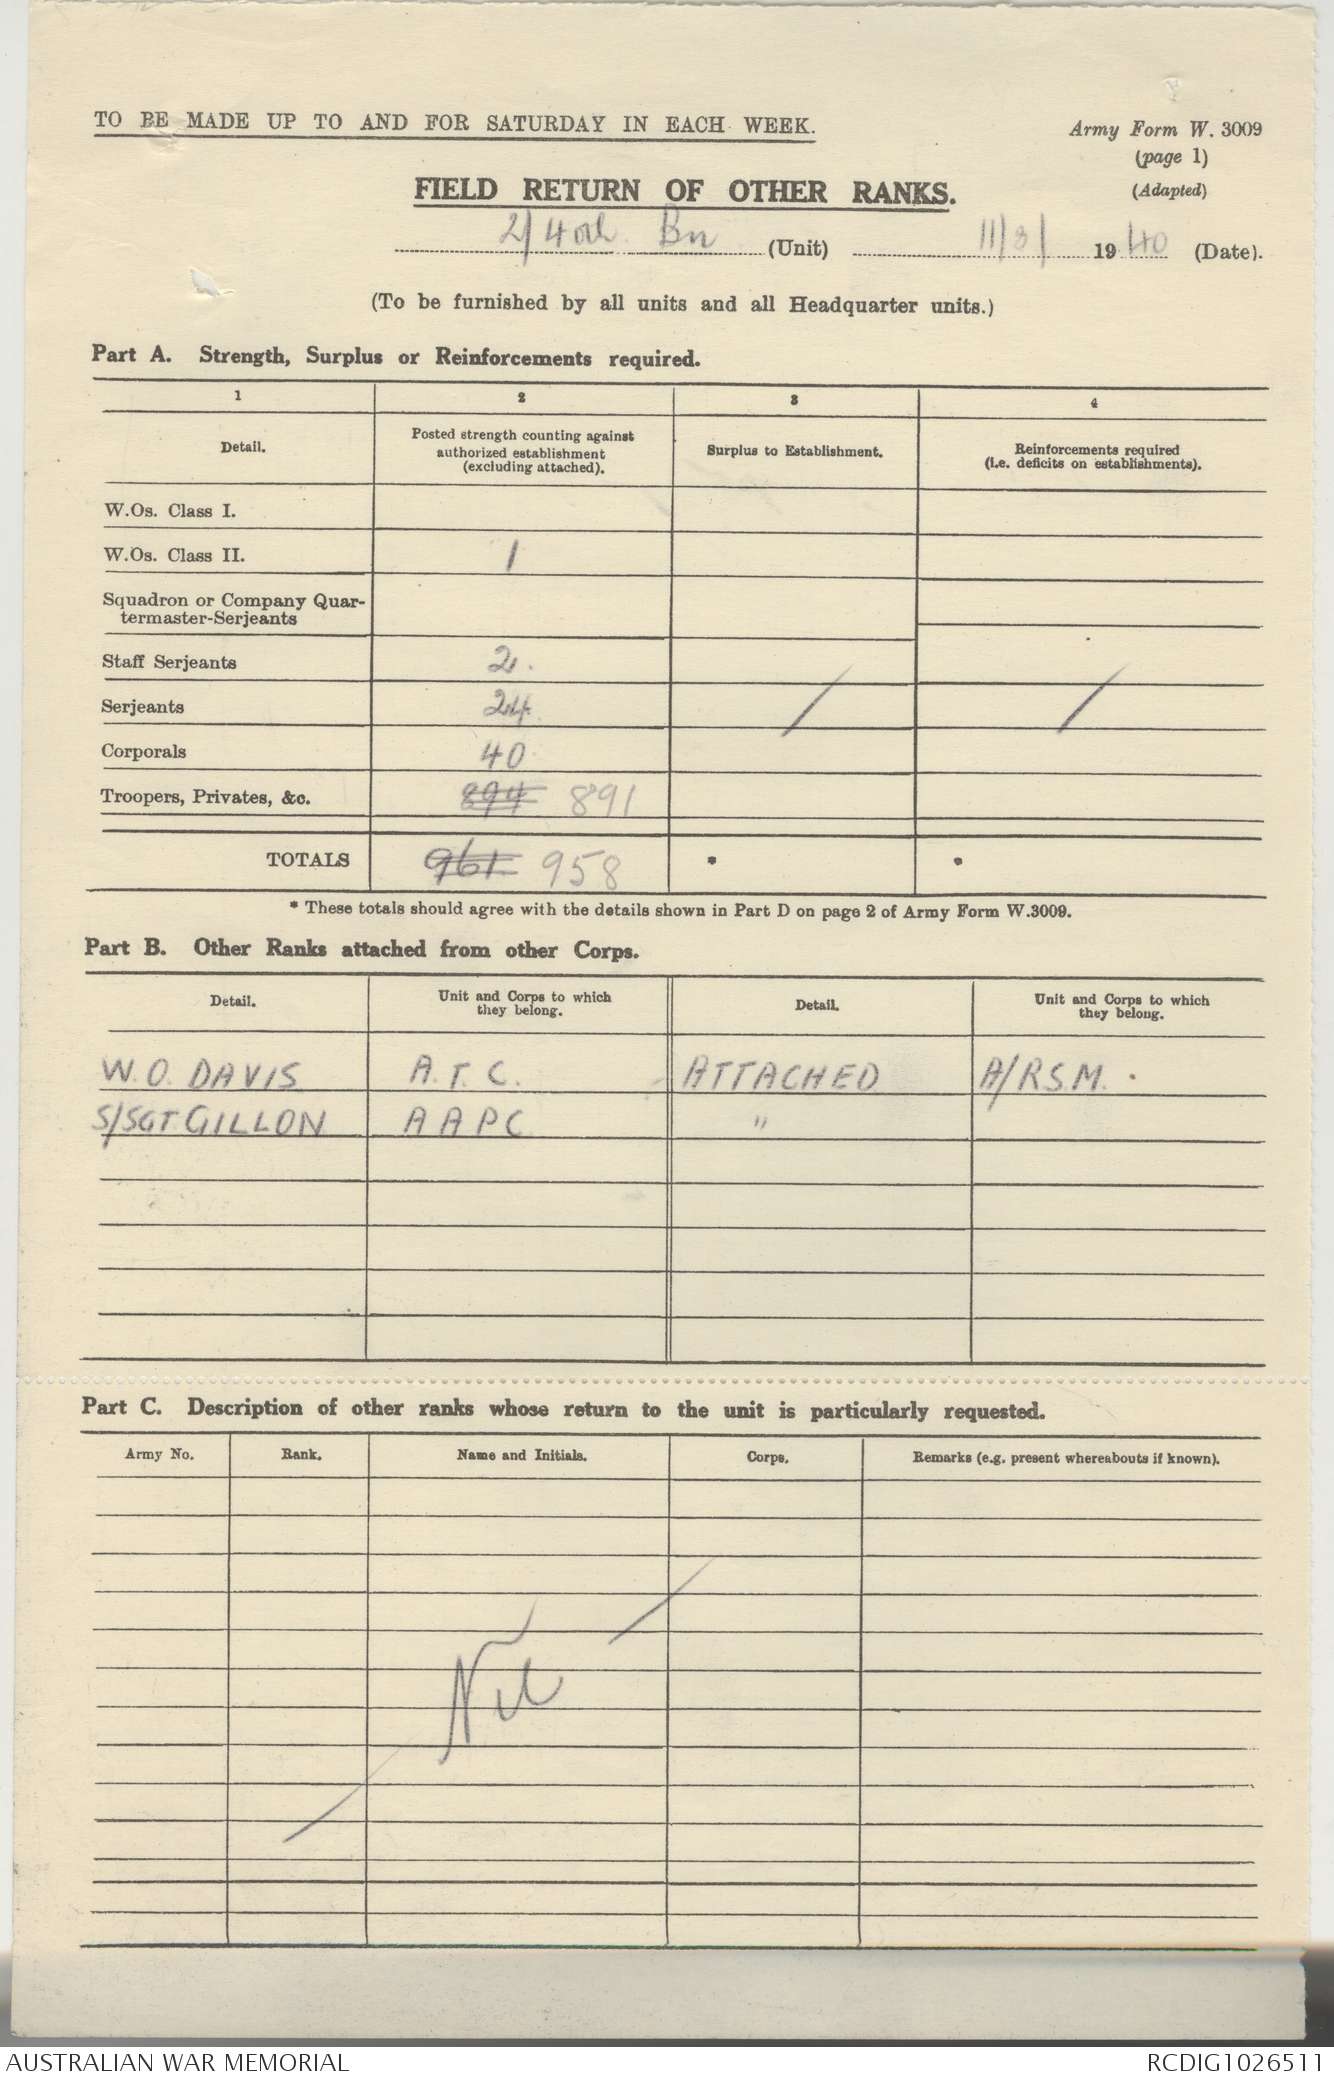 TO BE MADE UP TO AND FOR SATURDAY IN EACH WEEK.
Army Form W. 3009
(page 1)
(Adapted)
FIELD RETURN OF OTHER RANKS.
2/4th Bn (Unit) 11/3/ 1940 (Date).
(To be furnished by all units and all Headquarter units.)
Part A. Strength, Surplus or Reinforcements required.
1 2 3 4
Detail. Posted strength counting against authorized establishment (excluding attached). Surplus to Establishment. Reinforcements required (i.e. deficits on establishments).
W.Os. Class I.
W.Os. Class II. 1
Squadron or Company Quar-
termaster-Serjeants
Staff Serjeants 2.
Serjeants 24. / /
Corporals 40.
Troopers, Privates, &c. 894 891
TOTALS 961 958 * *
* These totals should agree with the details shown in Part D on page 2 of Army Form W.3009.
Part B. Other Ranks attached from other Corps.
Detail. Unit and Corps to which they belong. Detail. Unit and Corps to which they belong.
W.O. DAVIS A.T.C. ATTACHED A/R.S.M.
S/SGT. GILLON A A P C "
Part C. Description of other ranks whose return to the unit is particularly requested.
Army No. Rank. Name and Initials. Corps. Remarks (e.g. present whereabouts if known).
/ Nil /
AUSTRALIAN WAR MEMORIAL RCDIG1026511